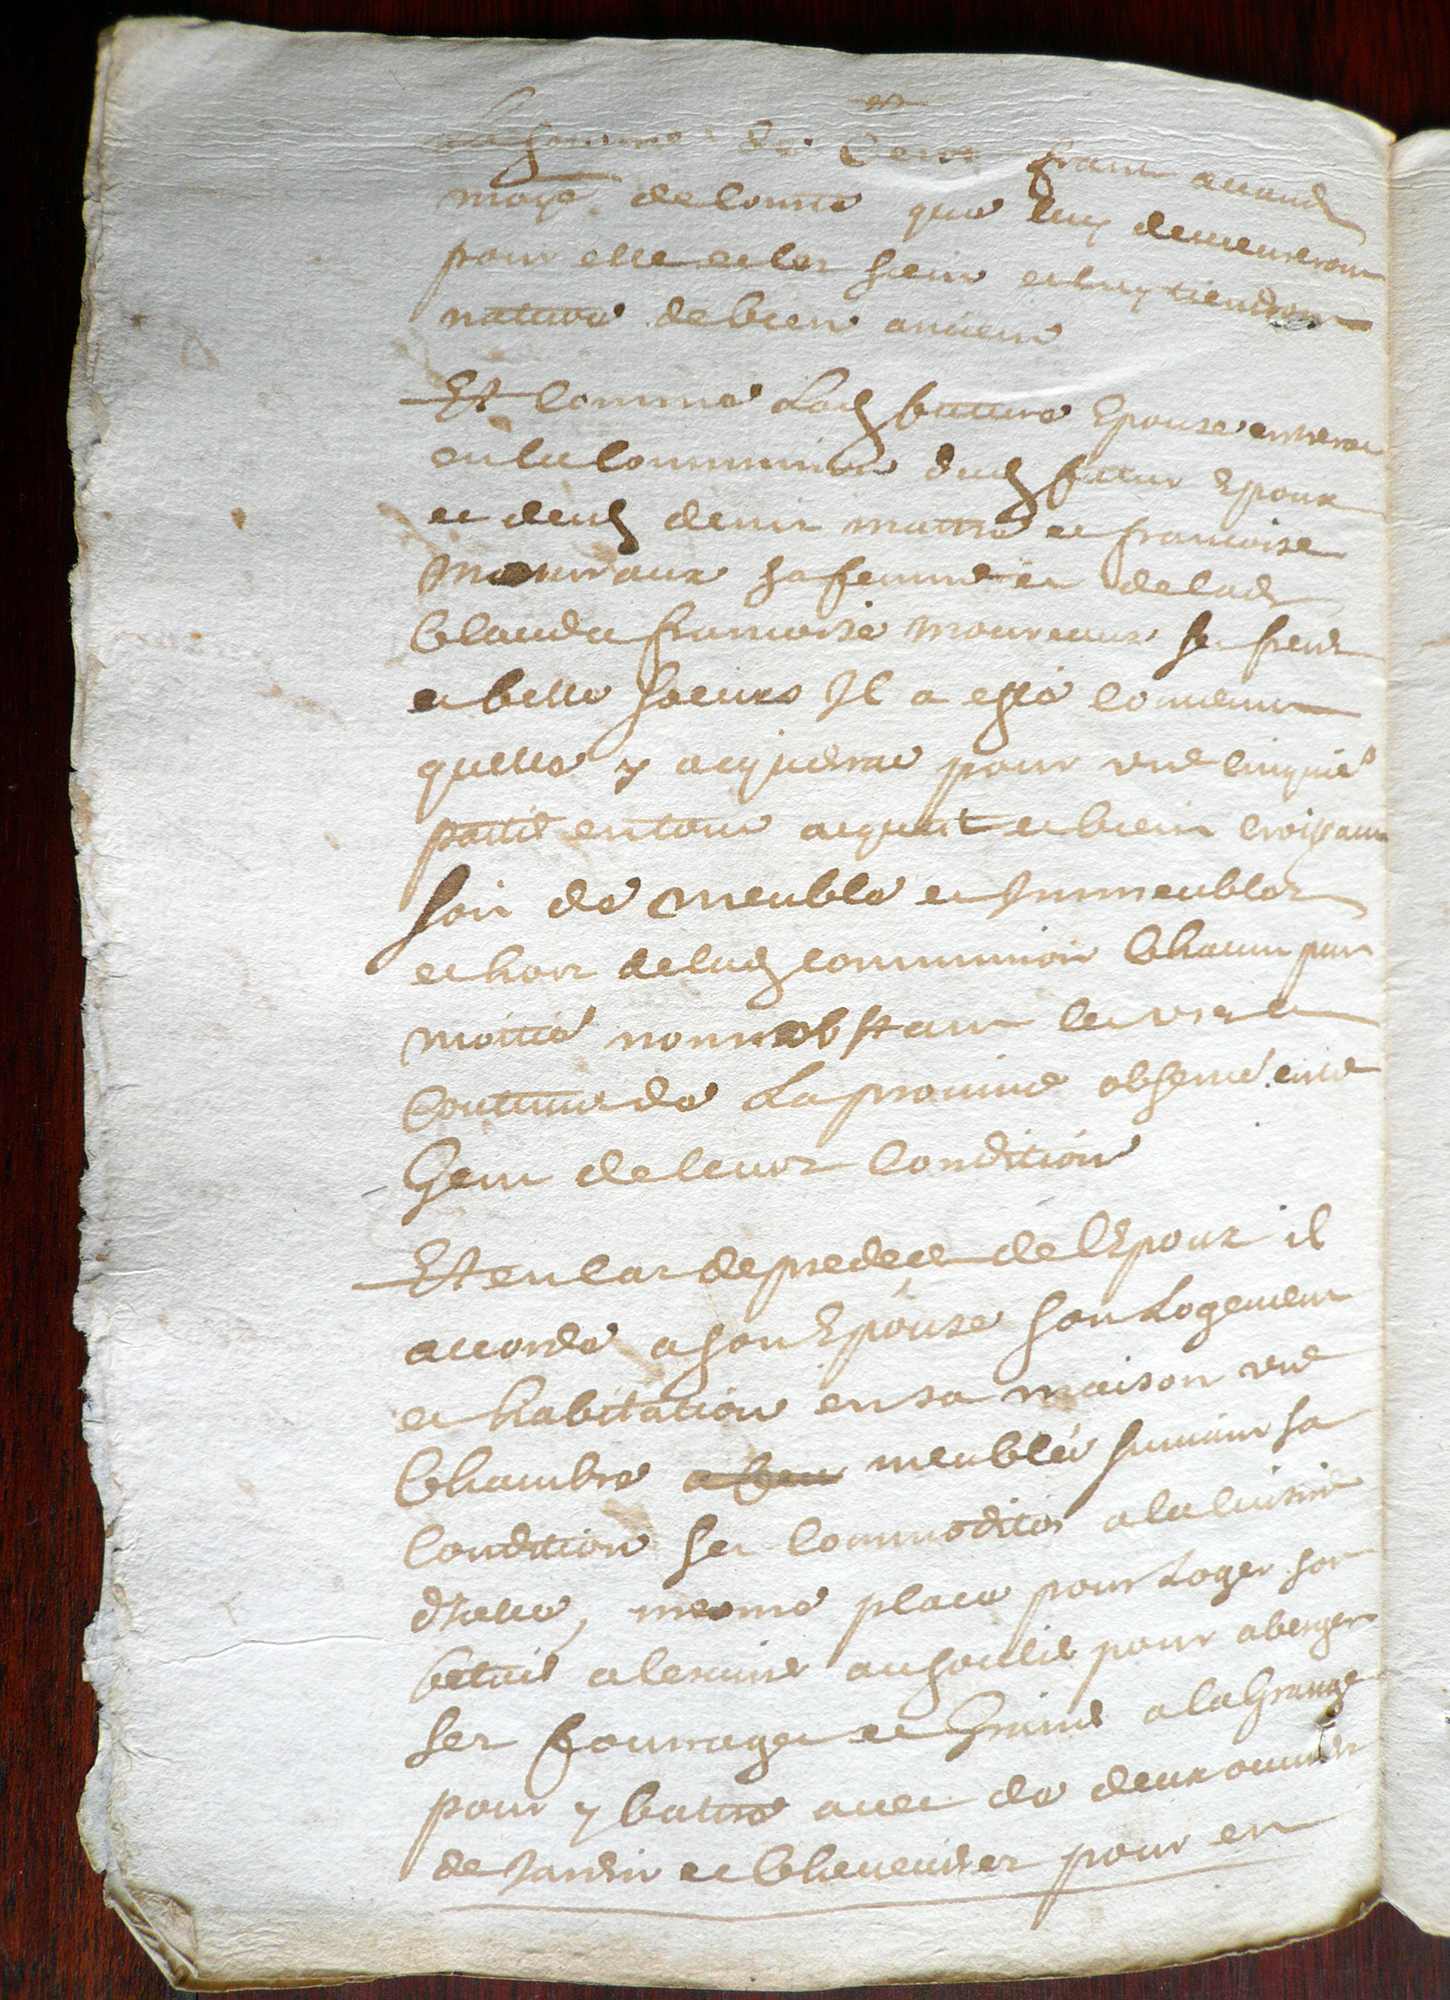 la somme de Cent franc
monoye de Comté que luy demeureront
pour elle et les siens et luy tiendront
nature de bien ancien
Et Comme Lad future Epouse entrera
en la Communion dud futur Epoux
et dud denis mattre et francoise
Mourraux sa femme et de lad
Clauda francoise mourreaux ses frere
et belle soeurs Il a esté Convenu
quelle y acquerra pour une Cinquie
partie en tous acquest et bien Croissans
soit de Meuble et Immeubles
et hors de lad communion Chacun par
moitié nonnobstant le us et
Coutume de La province observé entre
Gens de leurs Condition
Et en Cas de predece de l'Epoux il
accorde a son Epouse son Logement
et habitation en sa maison une
Chambre meublée suivant sa
Condition ses Commodités a la Cuisine
d'icelle, mesme place pour Loger son
betail a lecurie au soulié pour aberger
ses fourrages et Graine a la Grange
pour y battre avec de deux ouvrées
de Jardin et Chenevier pour en